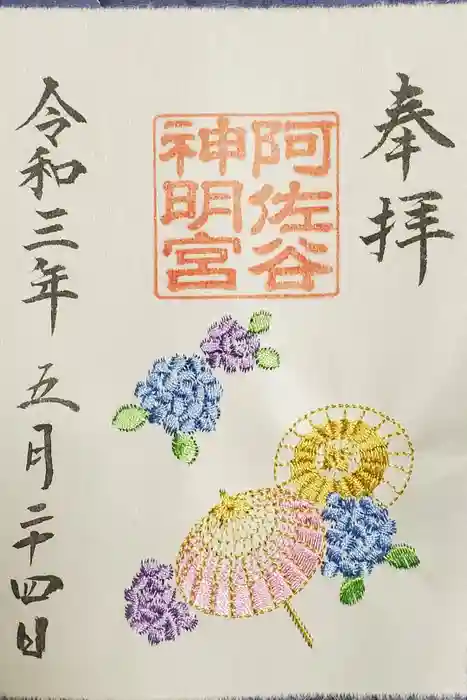 奉拝
阿佐谷
神明宮
令和三年 五月二十四日